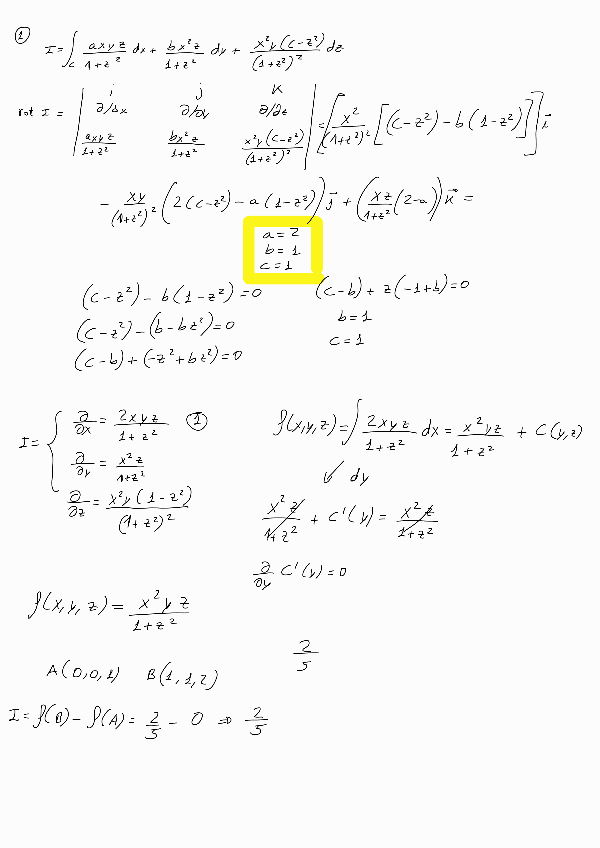 ① I = ∫_C axyz/(1+z²) dx + bx²z/(1+z²) dy + x²y(c-z²)/(1+z²)² dz
rot I = | i j k ; ∂/∂x ∂/∂y ∂/∂z ; axyz/(1+z²) bx²z/(1+z²) x²y(c-z²)/(1+z²)² | = [x²/(1+z²)² [(c-z²) - b(1-z²)]] i⃗
- xy/(1+z²)² (2(c-z²) - a(1-z²)) j⃗ + (xz/(1+z²) (2-a)) k⃗ =
a = 2
b = 1
c = 1
(c-z²) - b(1-z²) = 0 (c-b) + z(-1+b) = 0
(c-z²) - (b-bz²) = 0 b = 1
(c-b) + (-z²+bz²) = 0 c = 1
I = { ∂/∂x = 2xyz/(1+z²) ① f(x,y,z) = ∫ 2xyz/(1+z²) dx = x²yz/(1+z²) + C(y,z)
∂/∂y = x²z/(1+z²) ↙ dy
∂/∂z = x²y(1-z²)/(1+z²)² x²z/(1+z²) + C'(y) = x²z/(1+z²)
∂/∂y C'(y) = 0
f(x,y,z) = x²yz/(1+z²)
2/5
A(0,0,1) B(1,1,2)
I = f(B) - f(A) = 2/5 - 0 ⇒ 2/5